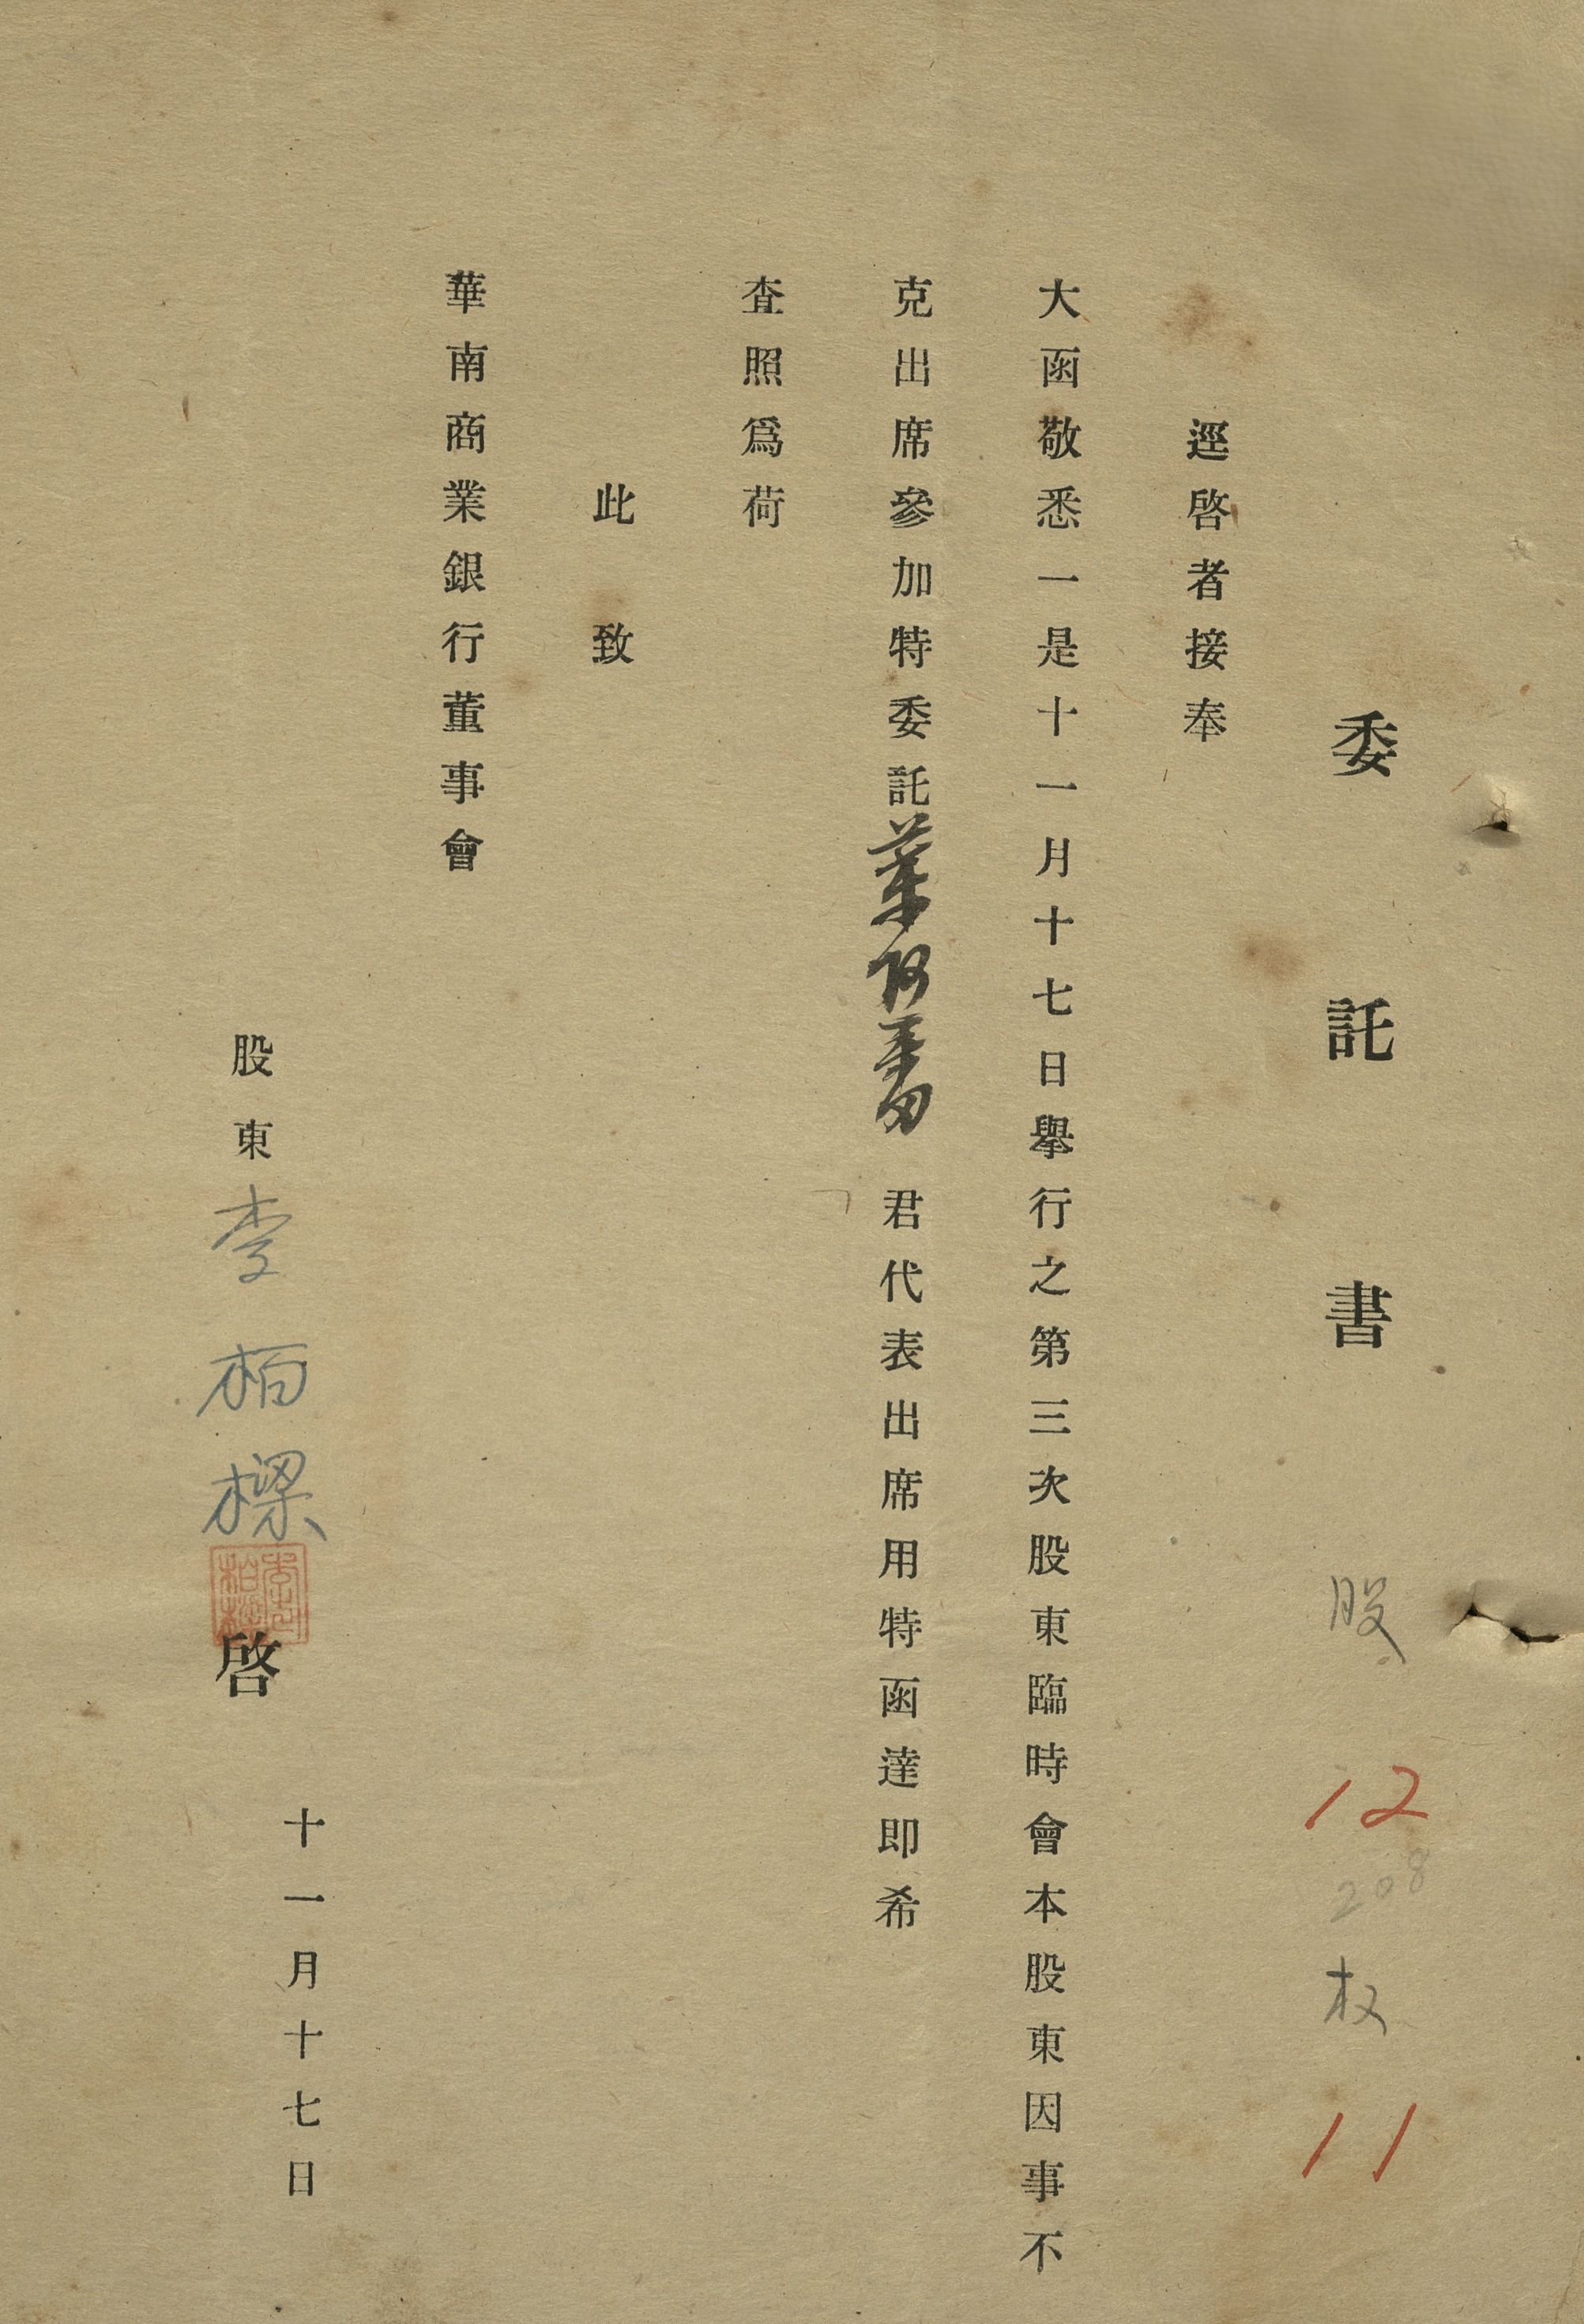 委託書 股 12 208 权 11
逕啓者接奉
大函敬悉一是十一月十七日舉行之第三次股東臨時會本股東因事不
克出席參加特委託葉阿蕃君代表出席用特函達即希
查照爲荷
此致
華南商業銀行董事會
股東李栢樑啓
十一月十七日